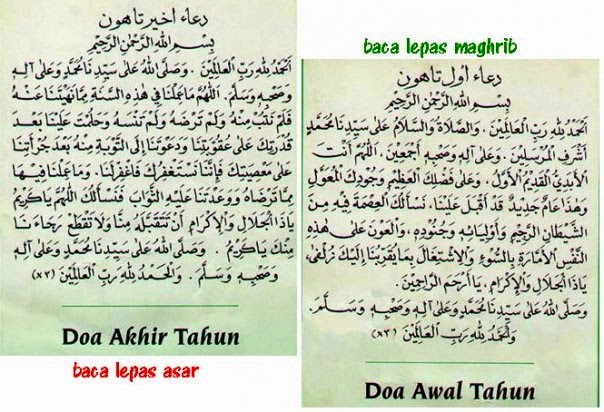 دعاء اخير تاهون
بِسْمِ اللهِ الرَّحْمٰنِ الرَّحِيْمِ
اَلْحَمْدُ لِلّٰهِ رَبِّ الْعَالَمِيْنَ . وَصَلَّى اللهُ عَلٰى سَيِّدِنَا مُحَمَّدٍ وَعَلٰى آلِهِ
وَصَحْبِهِ وَسَلَّمَ . اَللّٰهُمَّ مَا عَمِلْنَا فِي هٰذِهِ السَّنَةِ مِمَّا نَهَيْتَنَا عَنْهُ
فَلَمْ نَتُبْ مِنْهُ وَلَمْ تَرْضَهُ وَلَمْ تَنْسَهُ وَحَلُمْتَ عَلَيْنَا بَعْدَ
قُدْرَتِكَ عَلٰى عُقُوْبَتِنَا وَدَعَوْتَنَا إِلَى التَّوْبَةِ مِنْهُ بَعْدَ جُرْأَتِنَا
عَلٰى مَعْصِيَتِكَ فَإِنَّا نَسْتَغْفِرُكَ فَاغْفِرْ لَنَا . وَمَا عَمِلْنَا فِيْهَا
مِمَّا تَرْضَاهُ وَوَعَدْتَنَا عَلَيْهِ الثَّوَابَ فَنَسْأَلُكَ اللّٰهُمَّ يَا كَرِيْمُ
يَا ذَا الْجَلَالِ وَالْإِكْرَامِ أَنْ تَتَقَبَّلَهُ مِنَّا وَلَا تَقْطَعْ رَجَاءَنَا
مِنْكَ يَا كَرِيْمُ . وَصَلَّى اللهُ عَلٰى سَيِّدِنَا مُحَمَّدٍ وَعَلٰى آلِهِ
وَصَحْبِهِ وَسَلَّمَ . وَالْحَمْدُ لِلّٰهِ رَبِّ الْعَالَمِيْنَ (×٣)
Doa Akhir Tahun
baca lepas asar
baca lepas maghrib
دعاء اول تاهون
بِسْمِ اللهِ الرَّحْمٰنِ الرَّحِيْمِ
اَلْحَمْدُ لِلّٰهِ رَبِّ الْعَالَمِيْنَ . وَالصَّلَاةُ وَالسَّلَامُ عَلٰى سَيِّدِنَا مُحَمَّدٍ
أَشْرَفِ الْمُرْسَلِيْنَ . وَعَلٰى آلِهِ وَصَحْبِهِ أَجْمَعِيْنَ . اَللّٰهُمَّ أَنْتَ
الْأَبَدِيُّ الْقَدِيْمُ الْأَوَّلُ ، وَعَلٰى فَضْلِكَ الْعَظِيْمِ وَجُوْدِكَ الْمُعَوَّلِ
وَهٰذَا عَامٌ جَدِيْدٌ قَدْ أَقْبَلَ عَلَيْنَا ، نَسْأَلُكَ الْعِصْمَةَ فِيْهِ مِنَ
الشَّيْطَانِ الرَّجِيْمِ وَأَوْلِيَائِهِ وَجُنُوْدِهِ، وَالْعَوْنَ عَلٰى هٰذِهِ
النَّفْسِ الْأَمَّارَةِ بِالسُّوْءِ وَالْإِشْتِغَالَ بِمَا يُقَرِّبُنَا إِلَيْكَ زُلْفٰى،
يَا ذَا الْجَلَالِ وَالْإِكْرَامِ، يَا أَرْحَمَ الرَّاحِمِيْنَ .
وَصَلَّى اللهُ عَلٰى سَيِّدِنَا مُحَمَّدٍ وَعَلٰى آلِهِ وَصَحْبِهِ وَسَلَّمَ .
وَالْحَمْدُ لِلّٰهِ رَبِّ الْعَالَمِيْنَ . (×٣)
Doa Awal Tahun